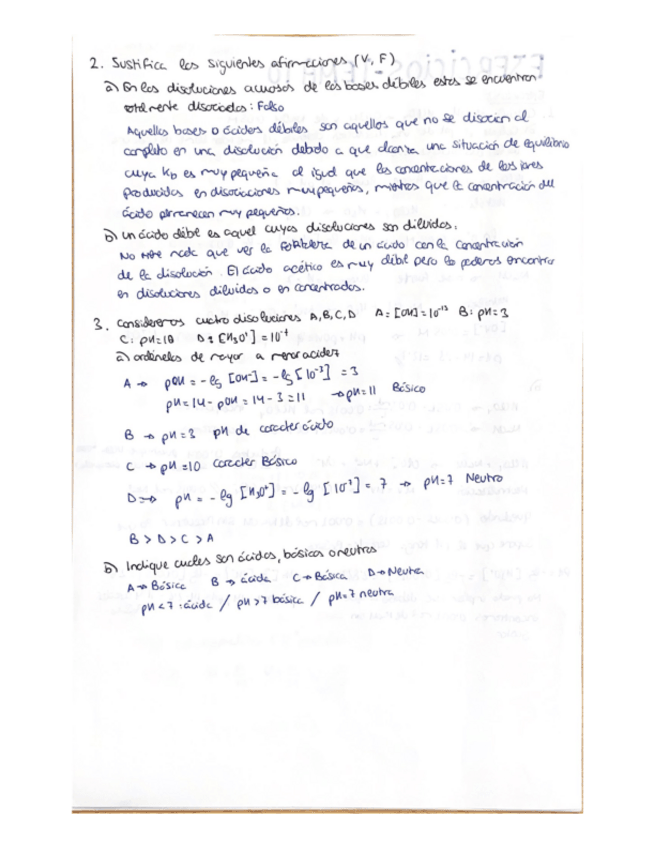 2. Justifica las siguientes afirmaciones (V, F)
a) En las disoluciones acuosas de las bases débiles estas se encuentran
totalmente disociadas: Falso
Aquellas bases o ácidos débiles son aquellos que no se disocian al
completo en una disolución debido a que alcanza una situación de equilibrio
cuya Kb es muy pequeña al igual que las concentraciones de los iones
producidas en disociaciones muy pequeñas, mientras que la concentración del
ácido permanecen muy pequeños.
b) un ácido débil es aquel cuyas disoluciones son diluidas.
No tiene nada que ver la fortaleza de un ácido con la concentración
de la disolución. El ácido acético es muy débil pero lo podemos encontrar
en disoluciones diluidas o en concentradas.
3. Consideremos cuatro disoluciones A, B, C, D A: [OH]=10⁻¹³ B: pH=3
C: pH=10 D: [H₃O⁺] = 10⁻⁷
a) ordénelas de mayor a menor acidez
A → pOH = -lg [OH⁻] = -lg [10⁻³] = 3
pH = 14 - pOH = 14 - 3 = 11 → pH = 11 Básico
B → pH = 3 pH de caracter ácido
C → pH = 10 caracter Básico
D → pH = -lg [H₃O⁺] = -lg [10⁻⁷] = 7 → pH=7 Neutro
B > D > C > A
b) Indique cuales son ácidas, básicas o neutras
A → Básica B → ácida C → Básica D → Neutra
pH < 7 : ácida / pH > 7 básica / pH=7 neutra